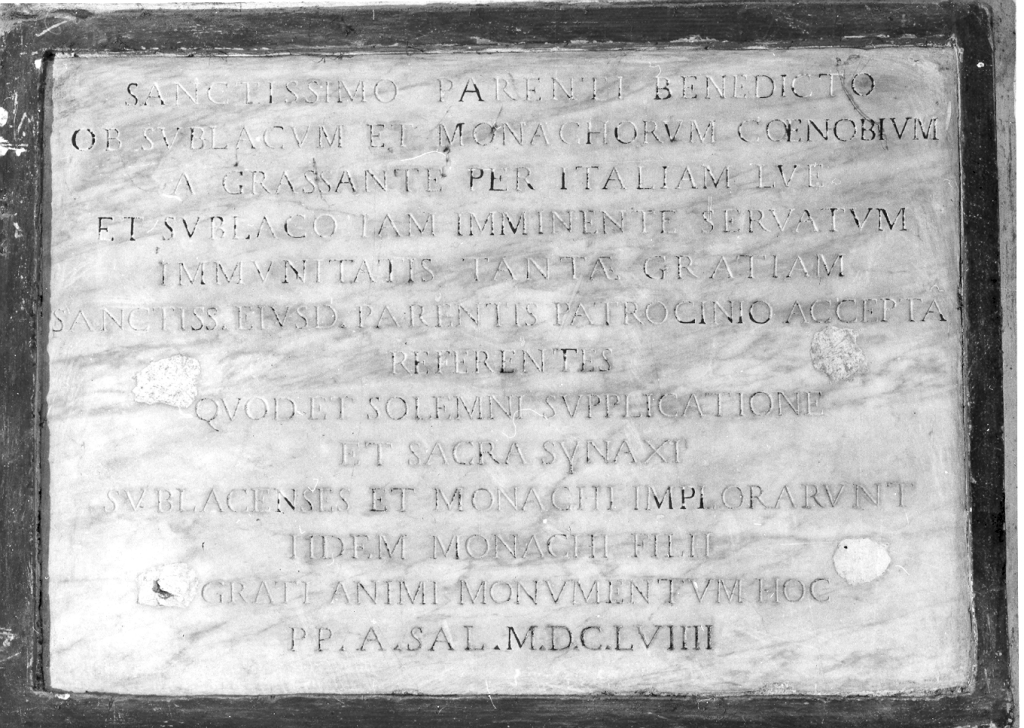 SANCTISSIMO PARENTI BENEDICTO
OB SVBLACVM ET MONACHORVM CŒNOBIVM
A GRASSANTE PER ITALIAM LVE
ET SVBLACO IAM IMMINENTE SERVATVM
IMMVNITATIS TANTÆ GRATIAM
SANCTISS. EIVSD. PARENTIS PATROCINIO ACCEPTA
REFERENTES
QVOD ET SOLEMNI SVPPLICATIONE
ET SACRA SYNAXI
SVBLACENSES ET MONACHI IMPLORARVNT
IIDEM MONACHI FILII
GRATI ANIMI MONVMENTVM HOC
PP. A. SAL. M.D.C.LVIIII